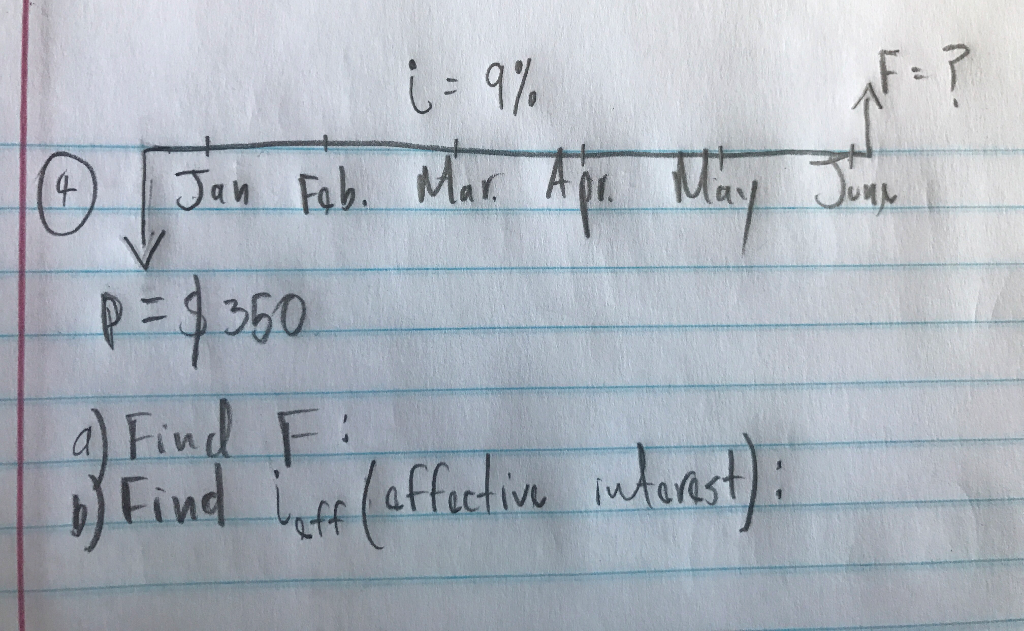 i = 9%
F = ?
4
Jan Feb. Mar. Apr. May June
P = $350
a) Find F:
b) Find ieff (effective interest):